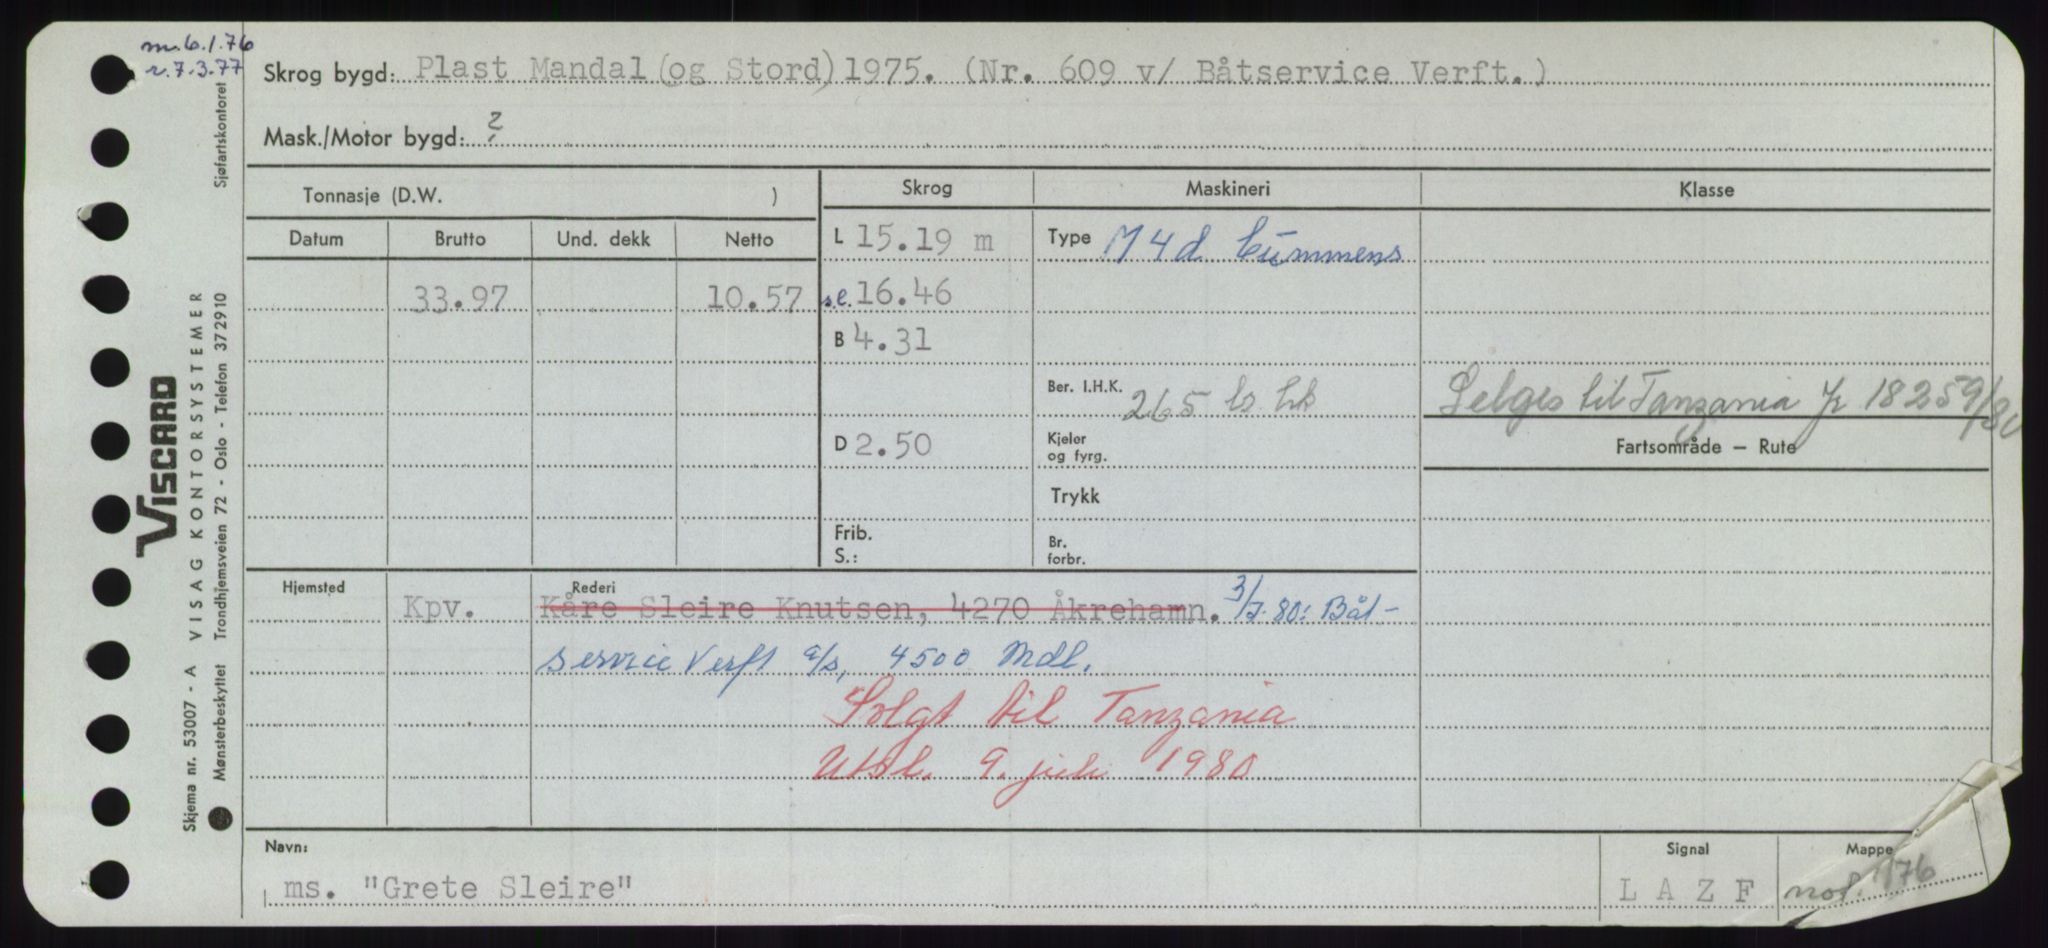 m. 6.1.76
r. 7.3.77
Sjøfartskontoret
Skrog bygd: Plast Mandal (og Stord) 1975. (Nr. 609 v/ Båtservice Verft.)
Mask./Motor bygd: ?
Tonnasje (D.W. )
Skrog
Maskineri
Klasse
Datum
Brutto
Und. dekk
Netto
L 15.19 m
Type M 4 d Cummens
33.97
10.57
s.l. 16.46
B 4.31
Ber. I.H.K. 265 b. hk
Selges til Tanzania Jr 18259/80
D 2.50
Kjeler
og fyrg.
Fartsområde – Rute
Trykk
Frib.
S.:
Br.
forbr.
Hjemsted
Rederi
Kpv.
Kåre Sleire Knutsen, 4270 Åkrehamn. 3/7-80: Båt-
service Verft a/s, 4500 Mdl.
Solgt til Tanzania
Utsl. 9. juli 1980
Navn:
ms. "Grete Sleire"
Signal
L A Z F
Mappe
not. 1/76
VISCARD
VISAG KONTORSYSTEMER
Skjema nr. 53007 - A
Mønsterbeskyttet Trondhjemsveien 72 - Oslo - Telefon 372910